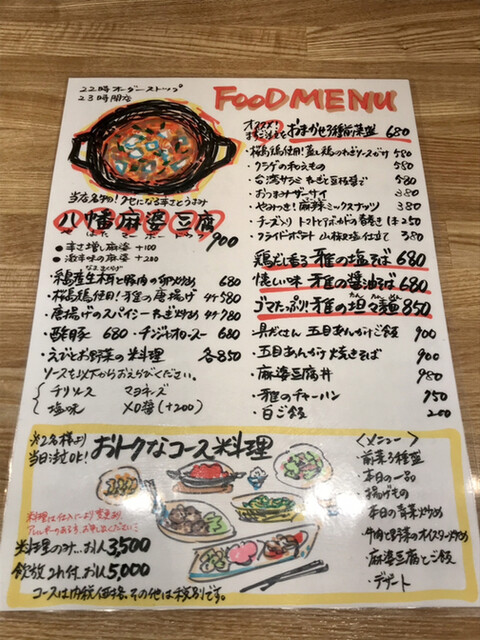 22時オーダーストップ
23時閉店
FOOD MENU
当店名物！クセになる辛さとうまみ
八幡麻婆豆腐
はちまんマーボードウフ
900
●辛さ増し麻婆 +100
●激辛味の麻婆 +200
オススメ！
おまかせ3種前菜盛 680
・桜島鶏使用！蒸し鶏のねぎソースがけ 580
・クラゲの和えもの 580
・台湾サラミ ねぎと豆板醤で 580
・おつまみザーサイ 380
・やみつき！麻辣ミックスナッツ 380
・チーズ入り トマトとアボカドの春巻き 1本250
・フライドポテト 山椒塩仕立て 380
鶏だし香る 雅の塩そば 680
懐しい味 雅の醤油そば 680
ゴマたっぷり！雅の坦々麺 850
・霧島産生木耳と豚肉の卵炒め 680
・桜島鶏使用！雅の唐揚げ 4ケ 580
・唐揚げのスパイシーねぎ炒め 4ケ 780
・酢豚 680 ・チンジャオロース― 680
・えびとお野菜の料理 各850
ソースを以下からおえらびください。
チリソース マヨネーズ
塩味 XO醬(+200)
・具だくさん 五目あんかけご飯 900
・五目あんかけ焼きそば 900
・麻婆豆腐丼 980
・雅のチャーハン 750
・白ご飯 200
※2名様より
当日注文OK！
おトクなコース料理
料理は仕入により変更あり
アレルギーのある方、お申し出ください
料理のみ…お1人 3,500
飲放つき付…お1人 5,000
コースは内税価格、その他は税別です。
〈メニュー〉
・前菜3種盛
・本日の一品
・揚げもの
・本日の青菜炒め
・牛肉と野菜のオイスター炒め
・麻婆豆腐とご飯
・デザート